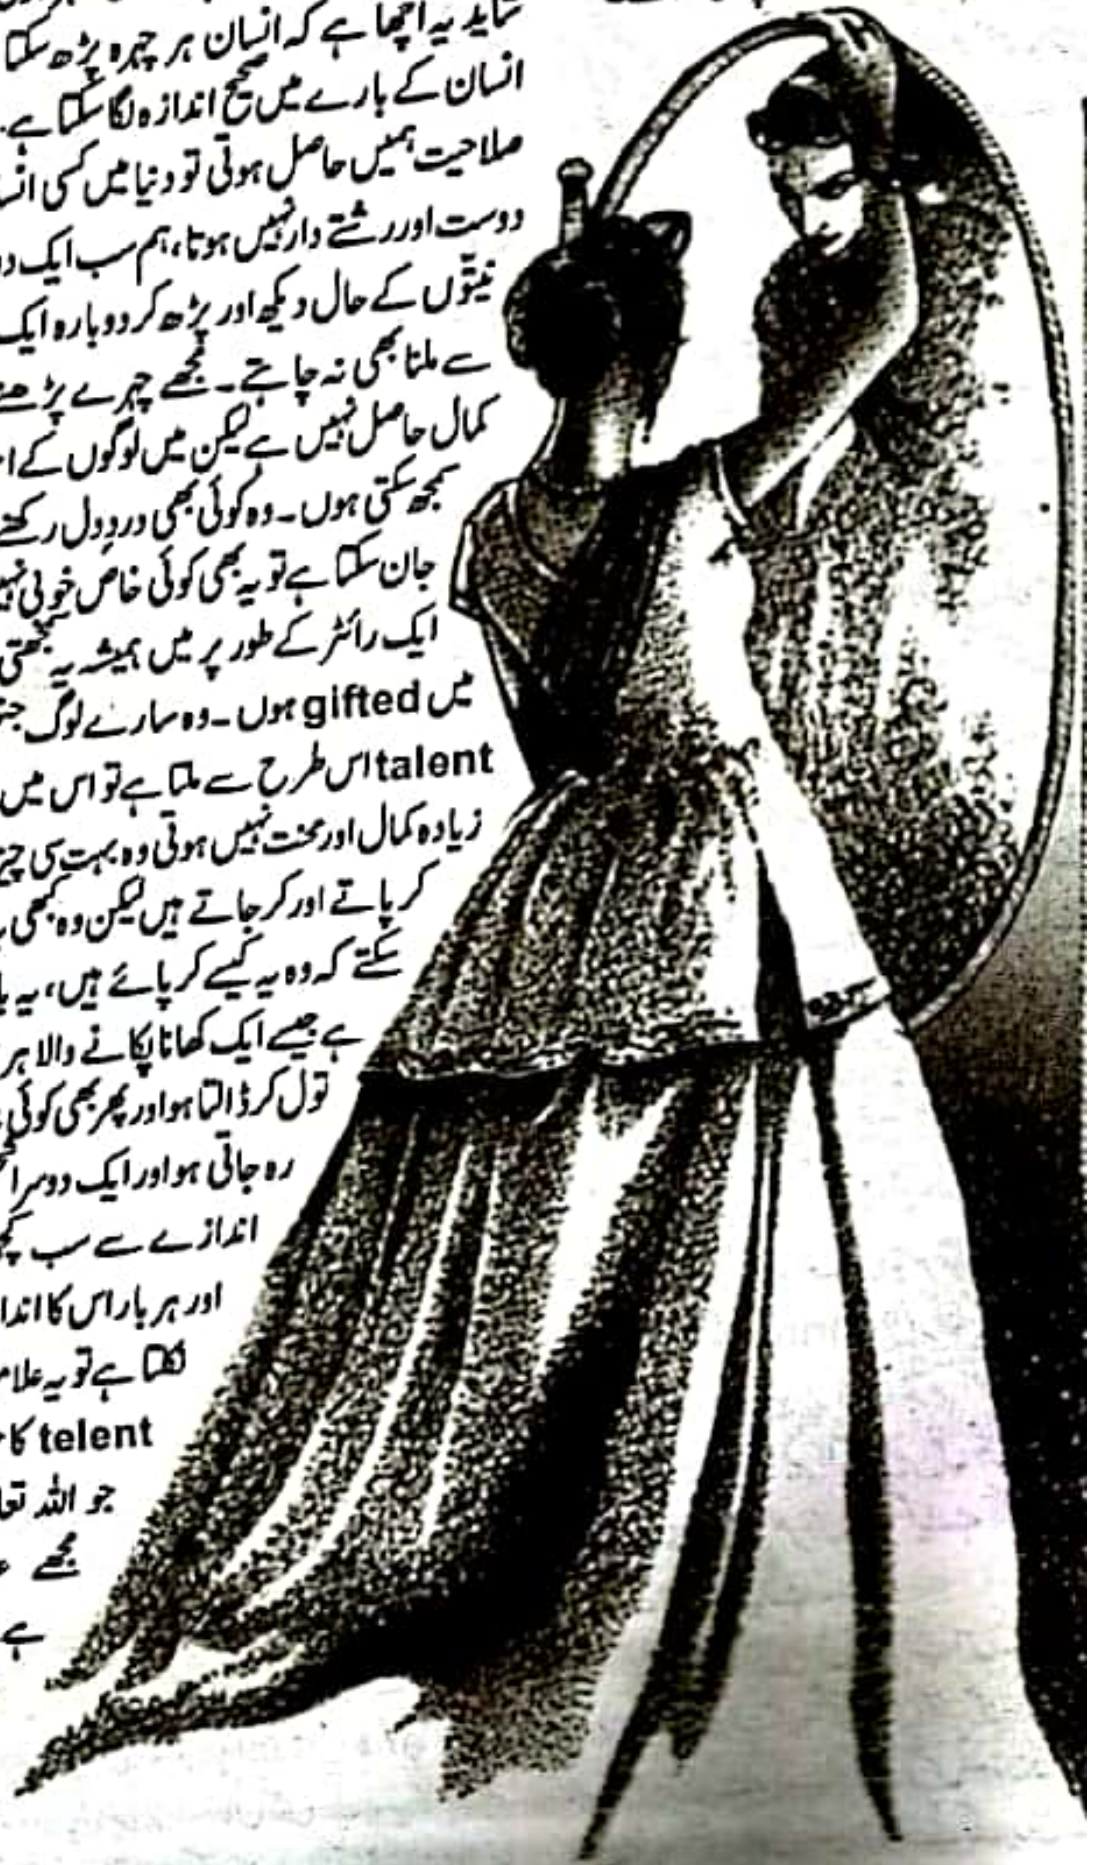 شاید یہ اچھا ہے کہ انسان ہر چہرہ پڑھ سکتا
انسان کے بارے میں صحیح اندازہ لگا سکتا ہے۔
صلاحیت ہمیں حاصل ہوتی تو دنیا میں کسی
دوست اور رشتے دار نہیں ہوتا، ہم سب ایک
نیتّوں کے حال دیکھ اور پڑھ کر دوبارہ ایک
سے ملنا بھی نہ چاہتے۔ مجھے چہرے پڑھنے
کمال حاصل نہیں ہے لیکن میں لوگوں کے
سمجھ سکتی ہوں۔ وہ کوئی بھی دردِ دل رکھنے
جان سکتا ہے تو یہ بھی کوئی خاص خوبی
ایک رائٹر کے طور پر میں ہمیشہ یہ سمجھتی
میں gifted ہوں۔ وہ سارے لوگ
talent اس طرح سے ملتا ہے تو اس میں
زیادہ کمال اور محنت نہیں ہوتی وہ بہت سی
کر پاتے اور کر جاتے ہیں لیکن وہ کبھی
سکتے کہ وہ یہ کیسے کر پائے ہیں، یہ
ہے جیسے ایک کھانا پکانے والا ہر
تول کر ڈالتا ہو اور پھر بھی کوئی
رہ جاتی ہو اور ایک دوسرا
اندازے سے سب
اور ہر بار اس کا
نکلتا ہے تو یہ
telent کا
جو اللہ
مجھے
ہے